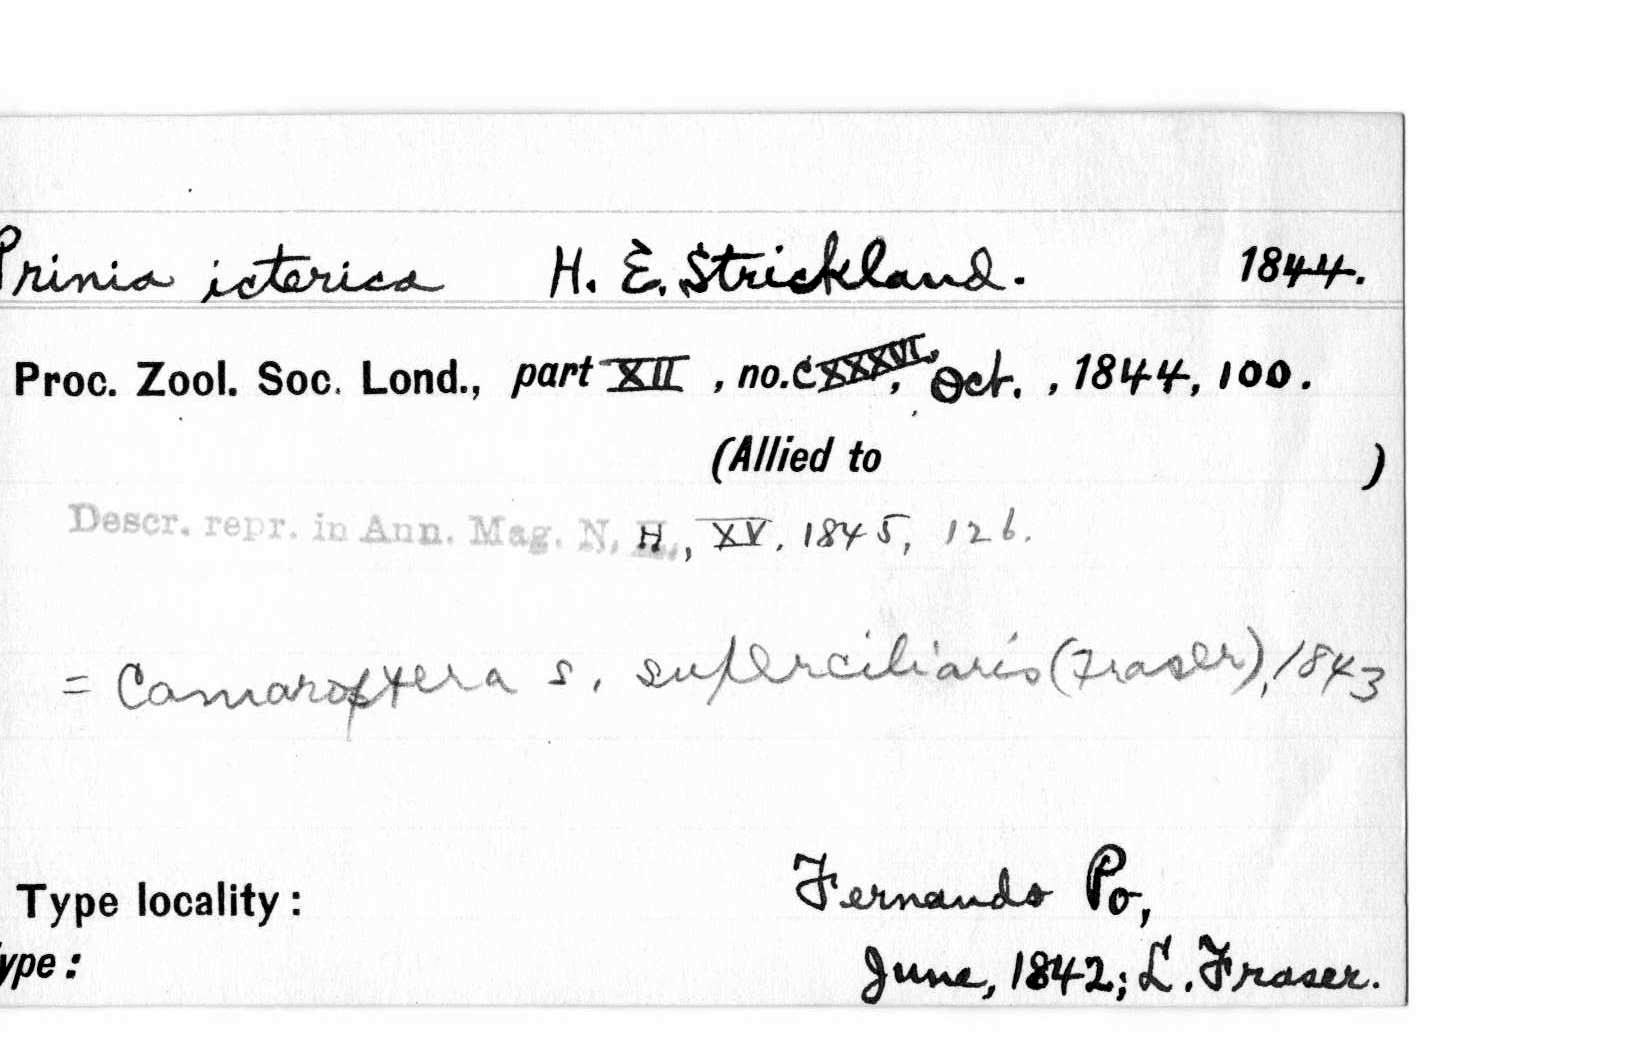 Prinia icterica H. E. Strickland. 1844.
Proc. Zool. Soc. Lond., part XII, no. CXXXVI, Oct., 1844, 100.
(Allied to )
Descr. repr. in Ann. Mag. N. H., XV, 1845, 126.
= Camaroptera s. superciliaris (Fraser), 1843
Type locality: Fernando Po,
ype: June, 1842; L. Fraser.